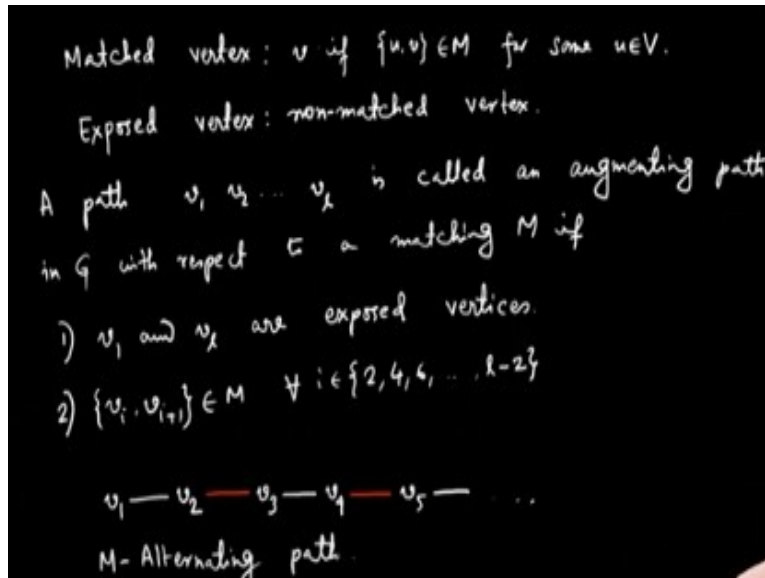 Matched vertex : v if {u,v} ∈ M for some u∈V.
Exposed vertex : non-matched vertex.
A path v₁ v₂ ... vₗ is called an augmenting path
in G with respect to a matching M if
1) v₁ and vₗ are exposed vertices.
2) {vᵢ, vᵢ₊₁} ∈ M ∀ i ∈ {2, 4, 6, ..., l-2}
v₁ — v₂ — v₃ — v₄ — v₅ — ...
M-Alternating path.